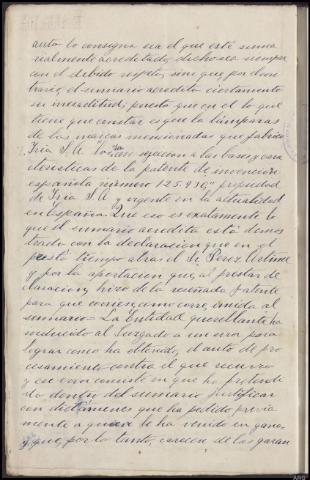 auto lo consigna sea el que esté suma
realmente acreditado, dicho sea siempre
con el debido respeto, sino que, por el con
trario, el sumario acredita ciertamente
su inexactitud, puesto que en él lo que
tiene que constar es que la lámparas
de las marcas mencionadas que fabrica
Iria S.A. se sujetan a las bases y cara
cterísticas de la patente de invención
española número 125.936, propiedad
de Iria S.A. y vigente en la actualidad
en España. Que eso es exactamente lo
que el sumario acredita está demos
trado con la declaración que en el
tiempo atrás el Sr. Perez
y por la aportación que, al prestar de
claración, hizo de la reseñada patente
para que corriese, como corre, unida al
sumario = La Entidad querellante ha
inducido al Juzgado a un error para
lograr como ha obtenido, el auto de pro
cesamiento contra el que recurro
y ese error consiste en que ha pretendi
do dentro del sumario justificar
con dictámenes que ha pedido previa
mente a quien le ha venido en gana
y que, por lo tanto, carecen de las garan